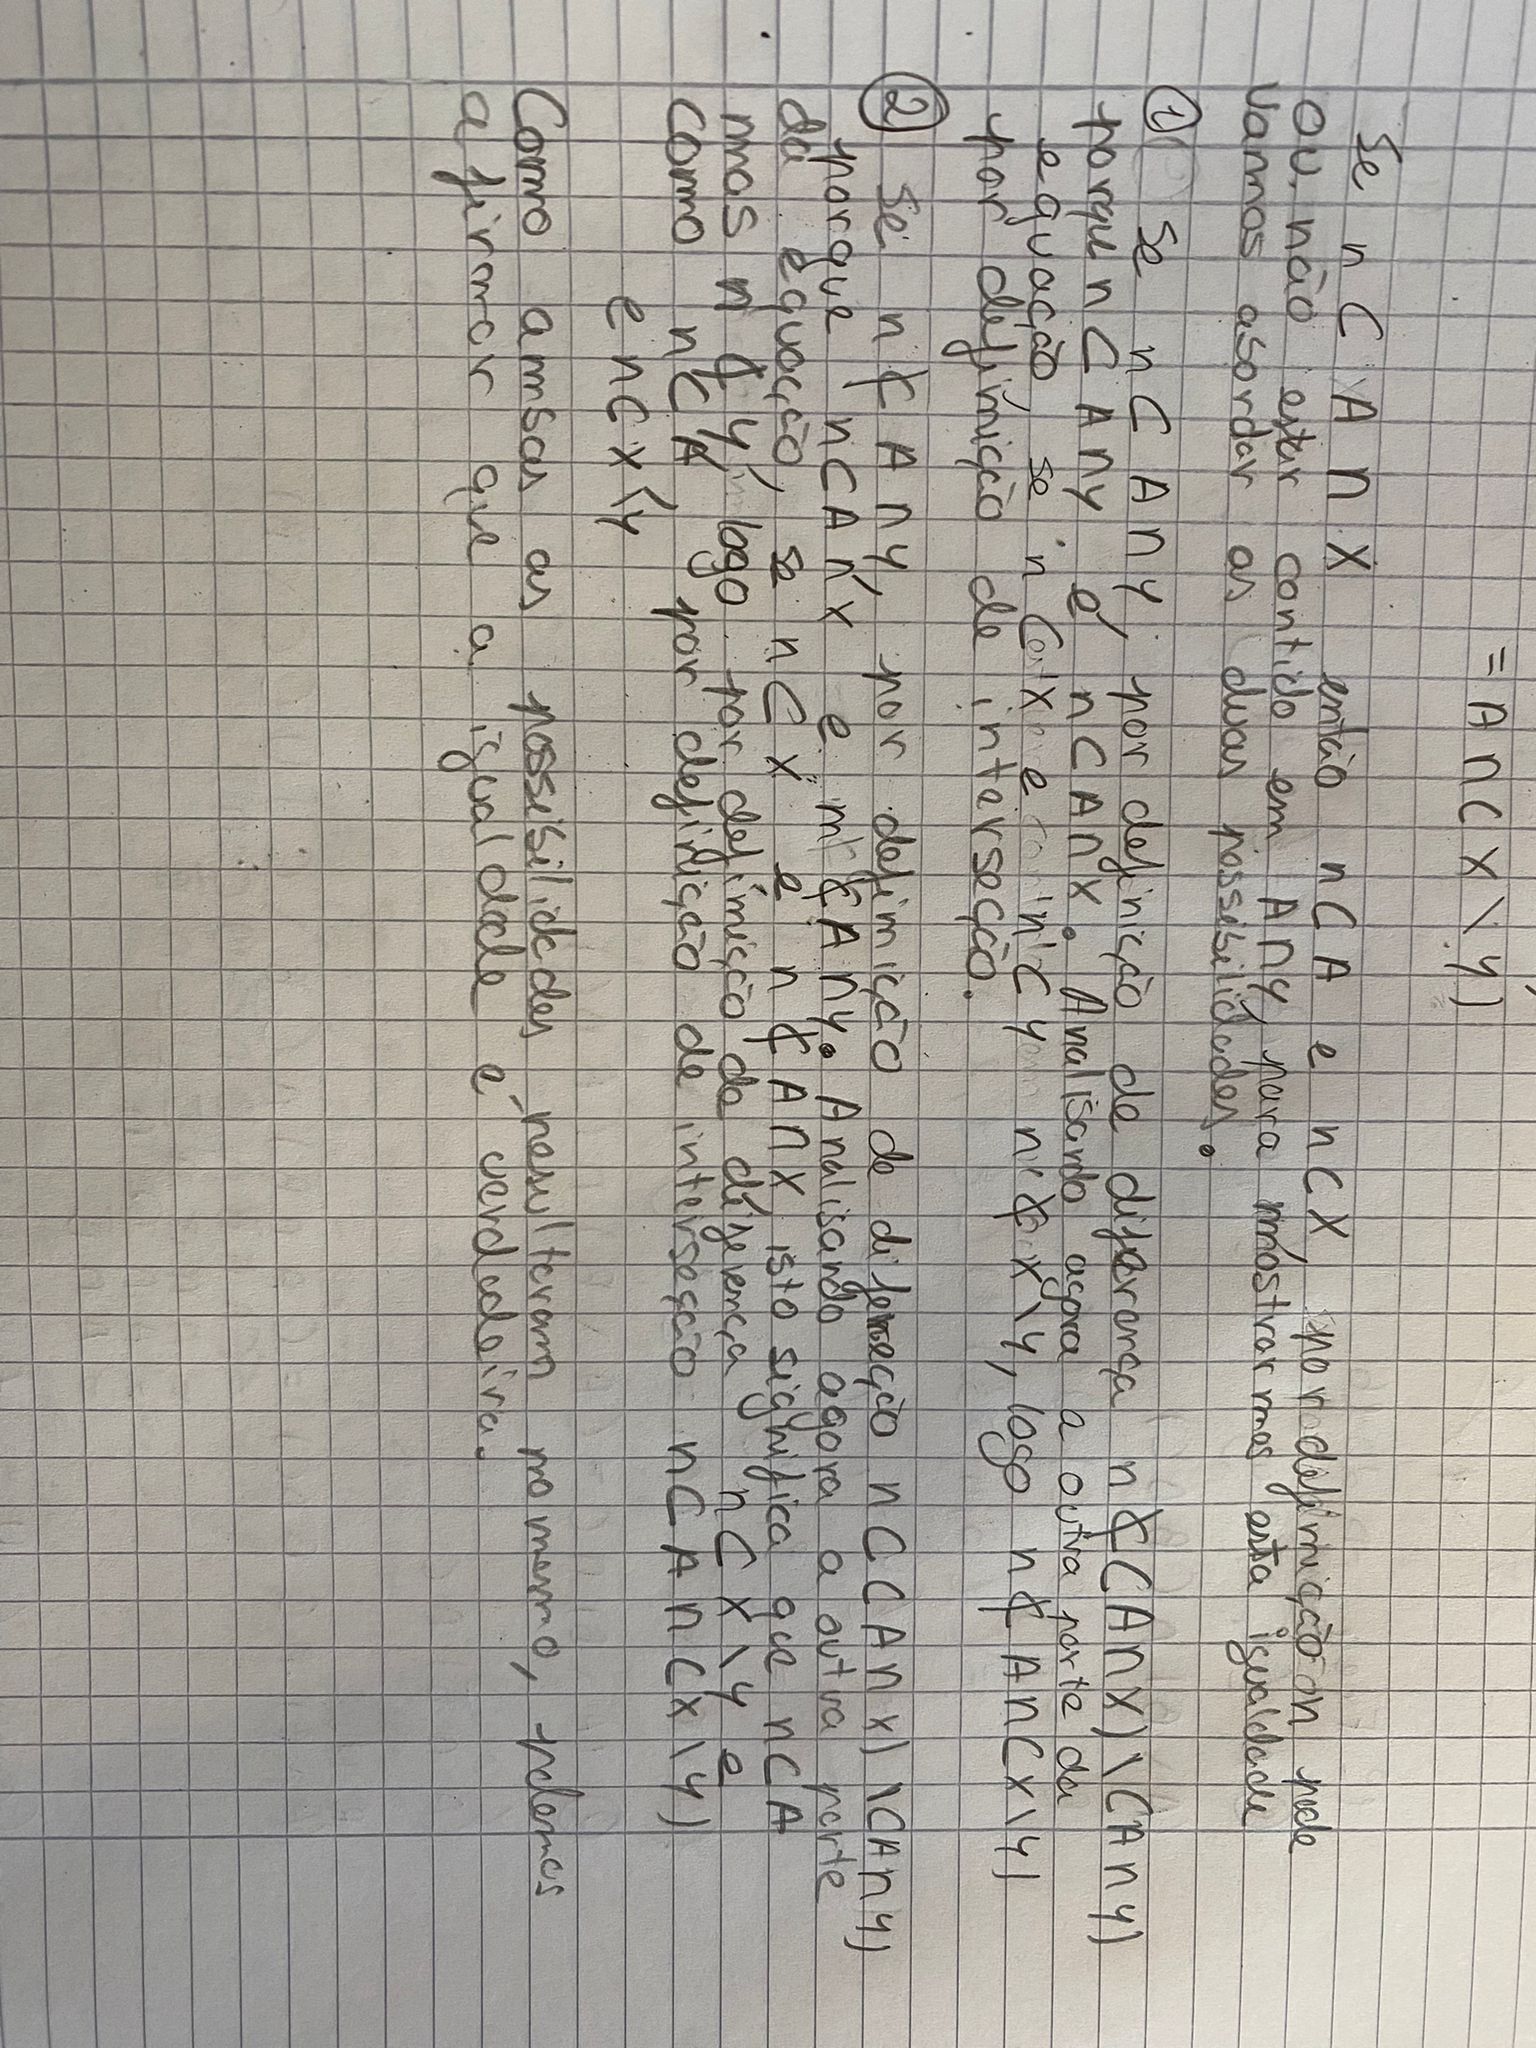 = A ∩ (X \ Y)
Se n ⊂ A ∩ X então n ⊂ A e n ⊂ X, por definição n pode
ou não estar contido em A ∩ Y, para mostrarmos esta igualdade
vamos abordar as duas possibilidades.
① Se n ⊂ A ∩ Y, por definição de diferença n ⊄ (A ∩ X) \ (A ∩ Y)
porque n ⊂ A ∩ Y e n ⊂ A ∩ X. Analisando agora a outra parte da
equação, se n ⊂ X e n ⊂ Y n ⊄ X \ Y, logo n ⊄ A ∩ (X \ Y)
por definição de interseção.
② Se n ⊄ A ∩ Y, por definição de n ⊂ (A ∩ X) \ (A ∩ Y)
porque n ⊂ A ∩ X e n ⊄ A ∩ Y. Analisando agora a outra parte
da equação, se n ⊂ X e n ⊄ A ∩ X, isto significa que n ⊂ A
mas n ⊄ Y, logo por definição de diferença n ⊂ X \ Y e
como n ⊂ A, por definição de interseção n ⊂ A ∩ (X \ Y)
e n ⊂ X \ Y
Como ambas as possibilidades resultaram no mesmo, podemos
afirmar que a igualdade é verdadeira.